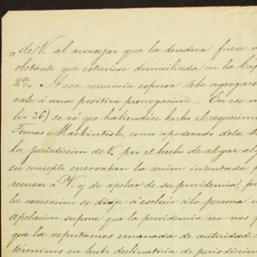 „ de V. al avanzar que la deudora fuera r
obstante que estuviese domiciliada en la Cap
2ª A esa renuncia espresa debe agregarse
vale á una positiva prorrogacion — En ese m
lio 36) se vé que habiendose hecho el requerim
Tomas Mackintosh como apoderado de la S
la jurisdiccion de V. por el hecho de alegar alg
su concepto enervaban la accion intentada p
recusar á V. y de apelar de su providencia; p
la recusacion se dirije á escluir á la persona
apelacion supone que la providencia no nos p
que la reputamos emanada de autoridad c
terminos no hubo declinatoria de jurisdiccion